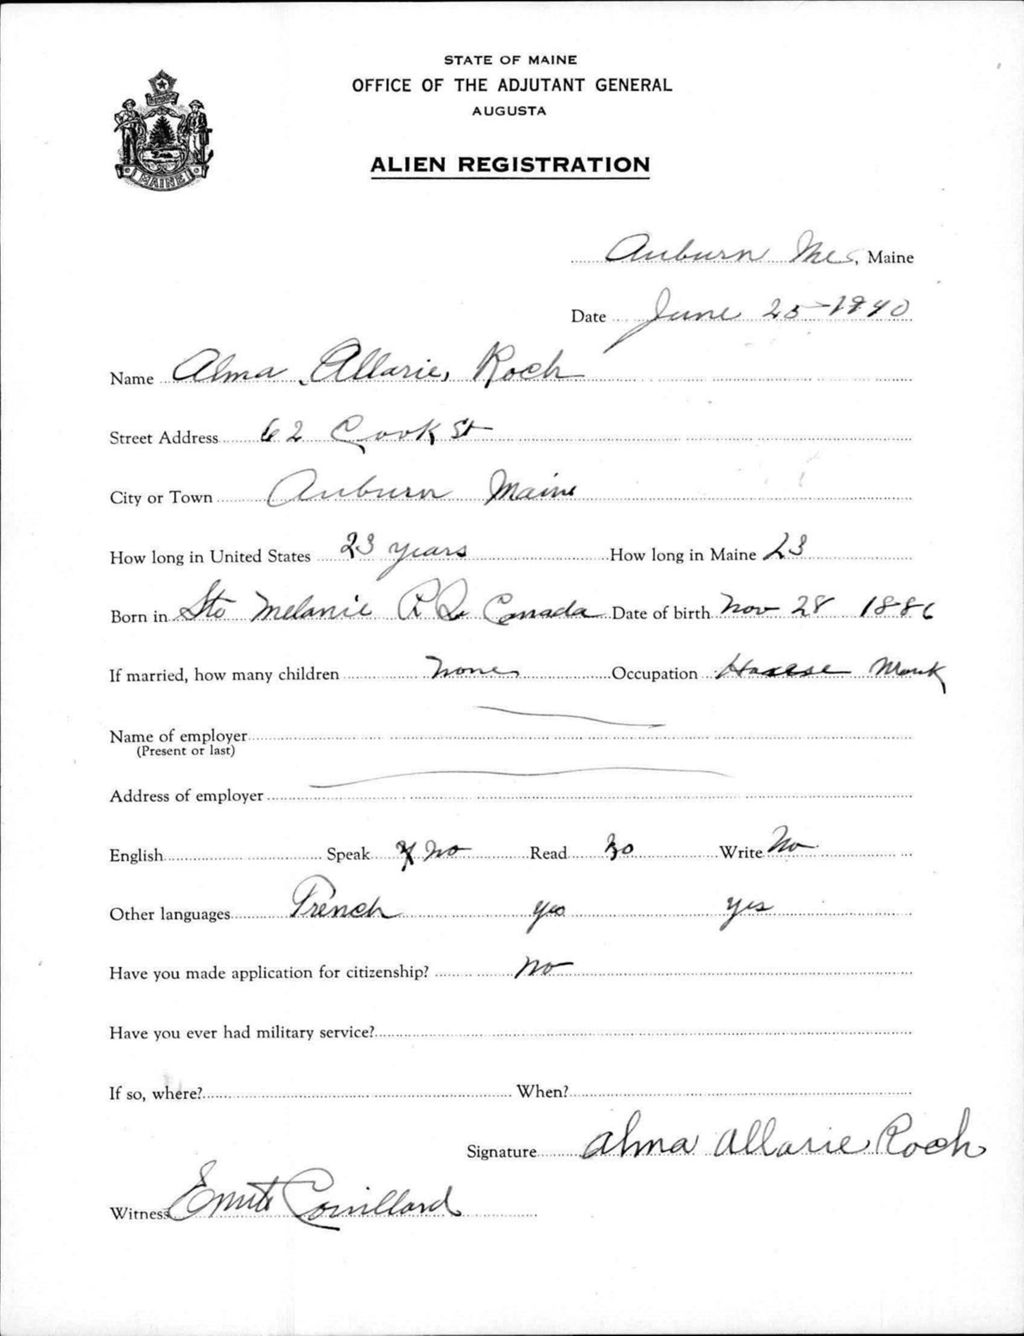 STATE OF MAINE
OFFICE OF THE ADJUTANT GENERAL
AUGUSTA
ALIEN REGISTRATION
MAINE
Auburn Me, Maine
Date June 25-1940
Name Alma Allarie, Roch
Street Address 62 Cook St
City or Town Auburn Maine
How long in United States 23 years How long in Maine 23
Born in Ste Melanie P. Q. Canada Date of birth Nov 28 1886
If married, how many children None Occupation House Work
Name of employer
(Present or last)
Address of employer
English Speak No Read No Write No
Other languages French yes yes
Have you made application for citizenship? No
Have you ever had military service?
If so, where? When?
Signature Alma Allarie Roch
Witness Couillard